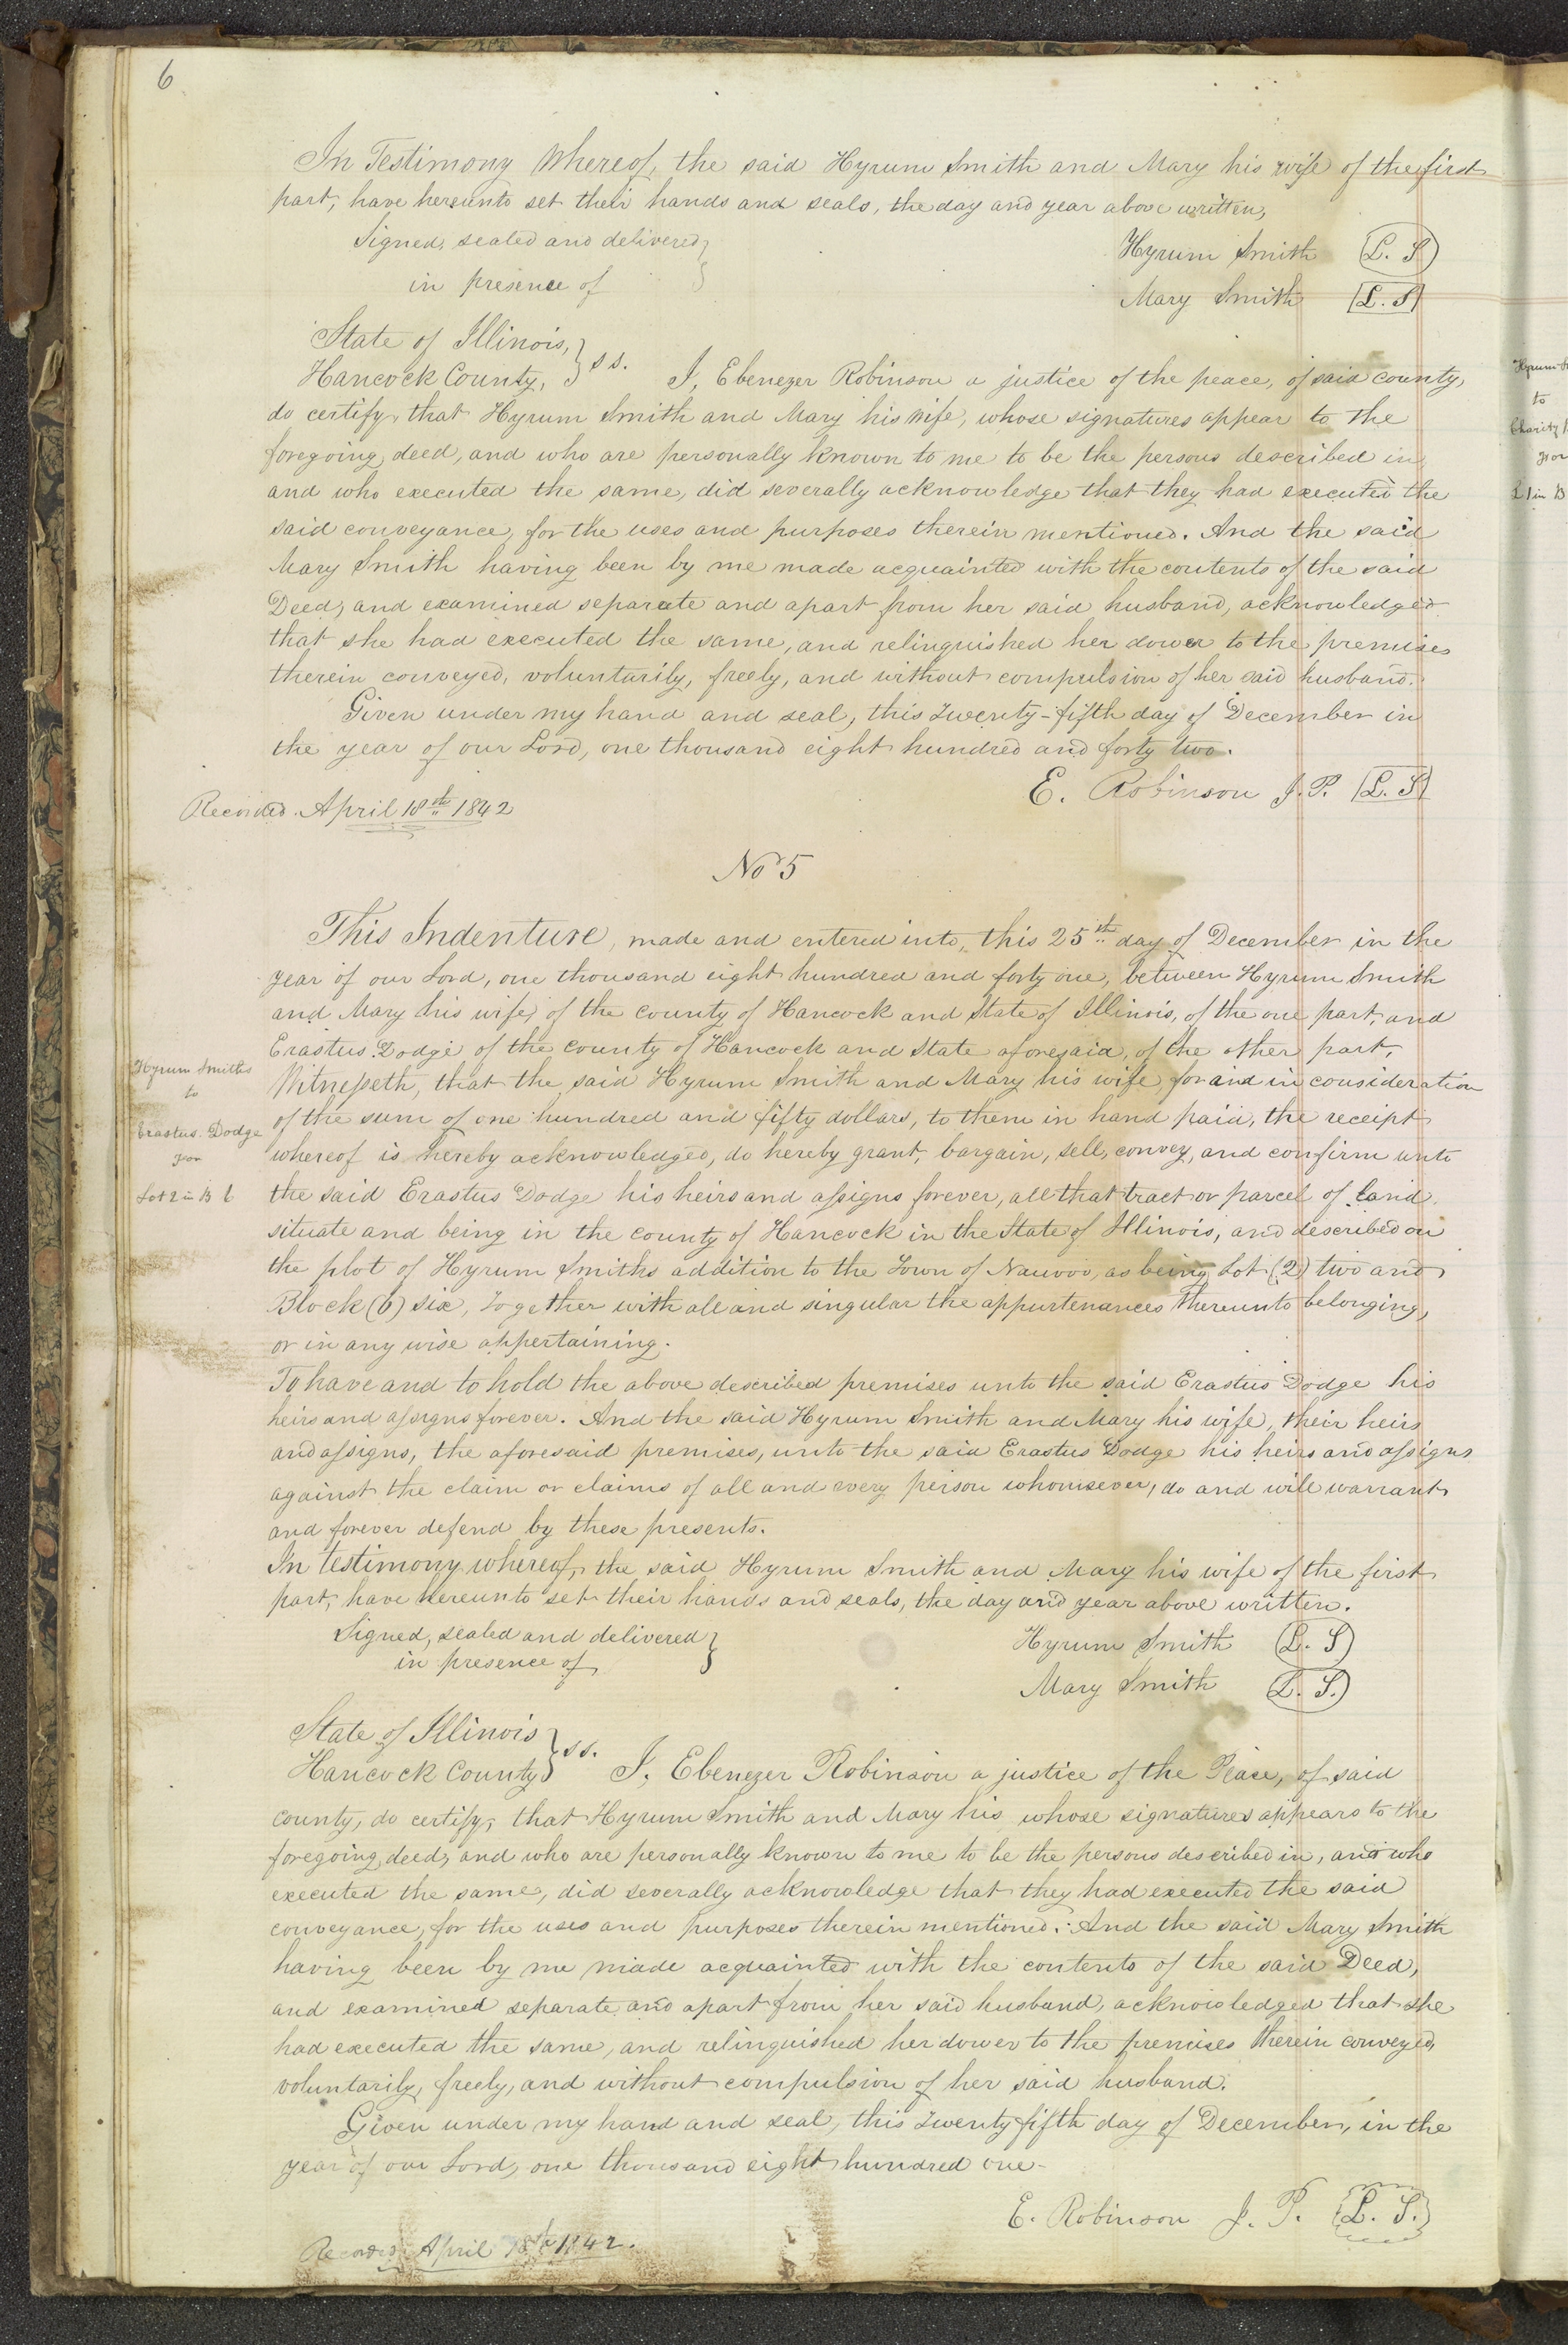 6
In Testimony Whereof, the said Hyrum Smith and Mary his wife of the first
part, have hereunto set their hands and seals, the day and year above written,
Signed, sealed and delivered }
in presence of
Hyrum Smith (L. S)
Mary Smith [L. S]
State of Illinois, } ss.
Hancock County,
I, Ebenezer Robinson a justice of the peace, of said county,
do certify that Hyrum Smith and Mary his wife, whose signatures appear to the
foregoing deed, and who are personally known to me to be the persons described in
and who executed the same, did severally acknowledge that they had executed the
said conveyance, for the uses and purposes therein mentioned. And the said
Mary Smith having been by me made acquainted with the contents of the said
Deed, and examined separate and apart from her said husband, acknowledged
that she had executed the same, and relinquished her dower to the premises
therein conveyed, voluntarily, freely, and without compulsion of her said husband.
Given under my hand and seal, this twenty-fifth day of December in
the year of our Lord, one thousand eight hundred and forty two.
E. Robinson J. P. [L. S]
Recorded April 18th 1842
No 5
This Indenture, made and entered into, this 25th day of December in the
year of our Lord, one thousand eight hundred and forty one, between Hyrum Smith
and Mary his wife, of the county of Hancock and State of Illinois, of the one part, and
Erastus Dodge of the county of Hancock and State aforesaid, of the other part,
Witnesseth, that the said Hyrum Smith and Mary his wife, for and in consideration
of the sum of one hundred and fifty dollars, to them in hand paid, the receipt
whereof is hereby acknowledged, do hereby grant, bargain, sell, convey, and confirm unto
the said Erastus Dodge his heirs and assigns forever, all that tract or parcel of land
situate and being in the county of Hancock in the State of Illinois, and described on
the plot of Hyrum Smiths addition to the Town of Nauvoo, as being Lot (2) two and
Block (6) six, together with all and singular the appurtenances thereunto belonging,
or in any wise appertaining.
Hyrum Smiths
to
Erastus Dodge
for
Lot 2 in B 6
To have and to hold the above described premises unto the said Erastus Dodge his
heirs and assigns forever. And the said Hyrum Smith and Mary his wife, their heirs
and assigns, the aforesaid premises, unto the said Erastus Dodge his heirs and assigns
against the claim or claims of all and every person whomsever, do and will warrant
and forever defend by these presents.
In testimony whereof, the said Hyrum Smith and Mary his wife of the first
part, have hereunto set their hands and seals, the day and year above written.
Signed, sealed and delivered }
in presence of
Hyrum Smith (L. S)
Mary Smith (L. S.)
State of Illinois } ss.
Hancock County
I, Ebenezer Robinson a justice of the Peace, of said
county, do certify, that Hyrum Smith and Mary his whose signatures appears to the
foregoing deed, and who are personally known to me to be the persons described in, and who
executed the same, did severally acknowledge that they had executed the said
conveyance, for the uses and purposes therein mentioned. And the said Mary Smith
having been by me made acquainted with the contents of the said Deed,
and examined separate and apart from her said husband, acknowledged that she
had executed the same, and relinquished her dower to the premises therein conveyed,
voluntarily, freely, and without compulsion of her said husband.
Given under my hand and seal, this twenty fifth day of December, in the
year of our Lord, one thousand eight hundred one-
E. Robinson J. P. {L. S.}
Recorded April 18th 1842.
Hyrum
to
Charity
for
L 1 in B